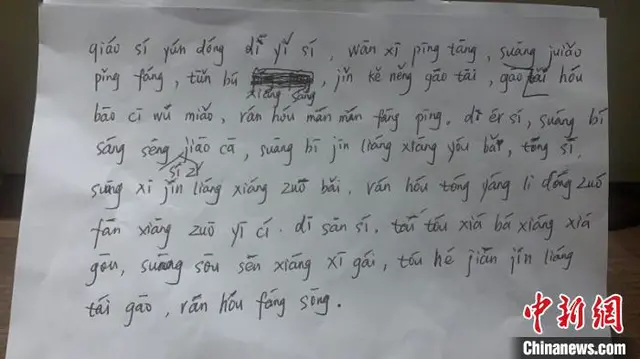 qiáo sí yún dóng dī yī sí, wān xī pīng tāng, suāng juiǎo
pǐng fáng, tūn bú, jǐn kě nēng gāo tāi, gāo tāi hóu
xiāng sāng
bāo cī wǔ miǎo, rán hóu mán mán fāng pīng. dī ér sí, suāng bí
sáng sēng jiāo cā, suāng bī jǐn liáng xiang yóu bǎi, tóng sí
sí zī
suāng xī jǐn liáng xiáng zuǒ bǎi. rán hóu tóng yáng lí dóng zuó
fān xiāng zuō yī cí. dī sān sí. tāi tóu xiá bá xiáng xiá
gōu, suāng sōu sēn xiáng xī gái, tóu hé jiān jǐn liáng
tái gāo, rán hóu fáng sōng.
中新网
Chinanews.com